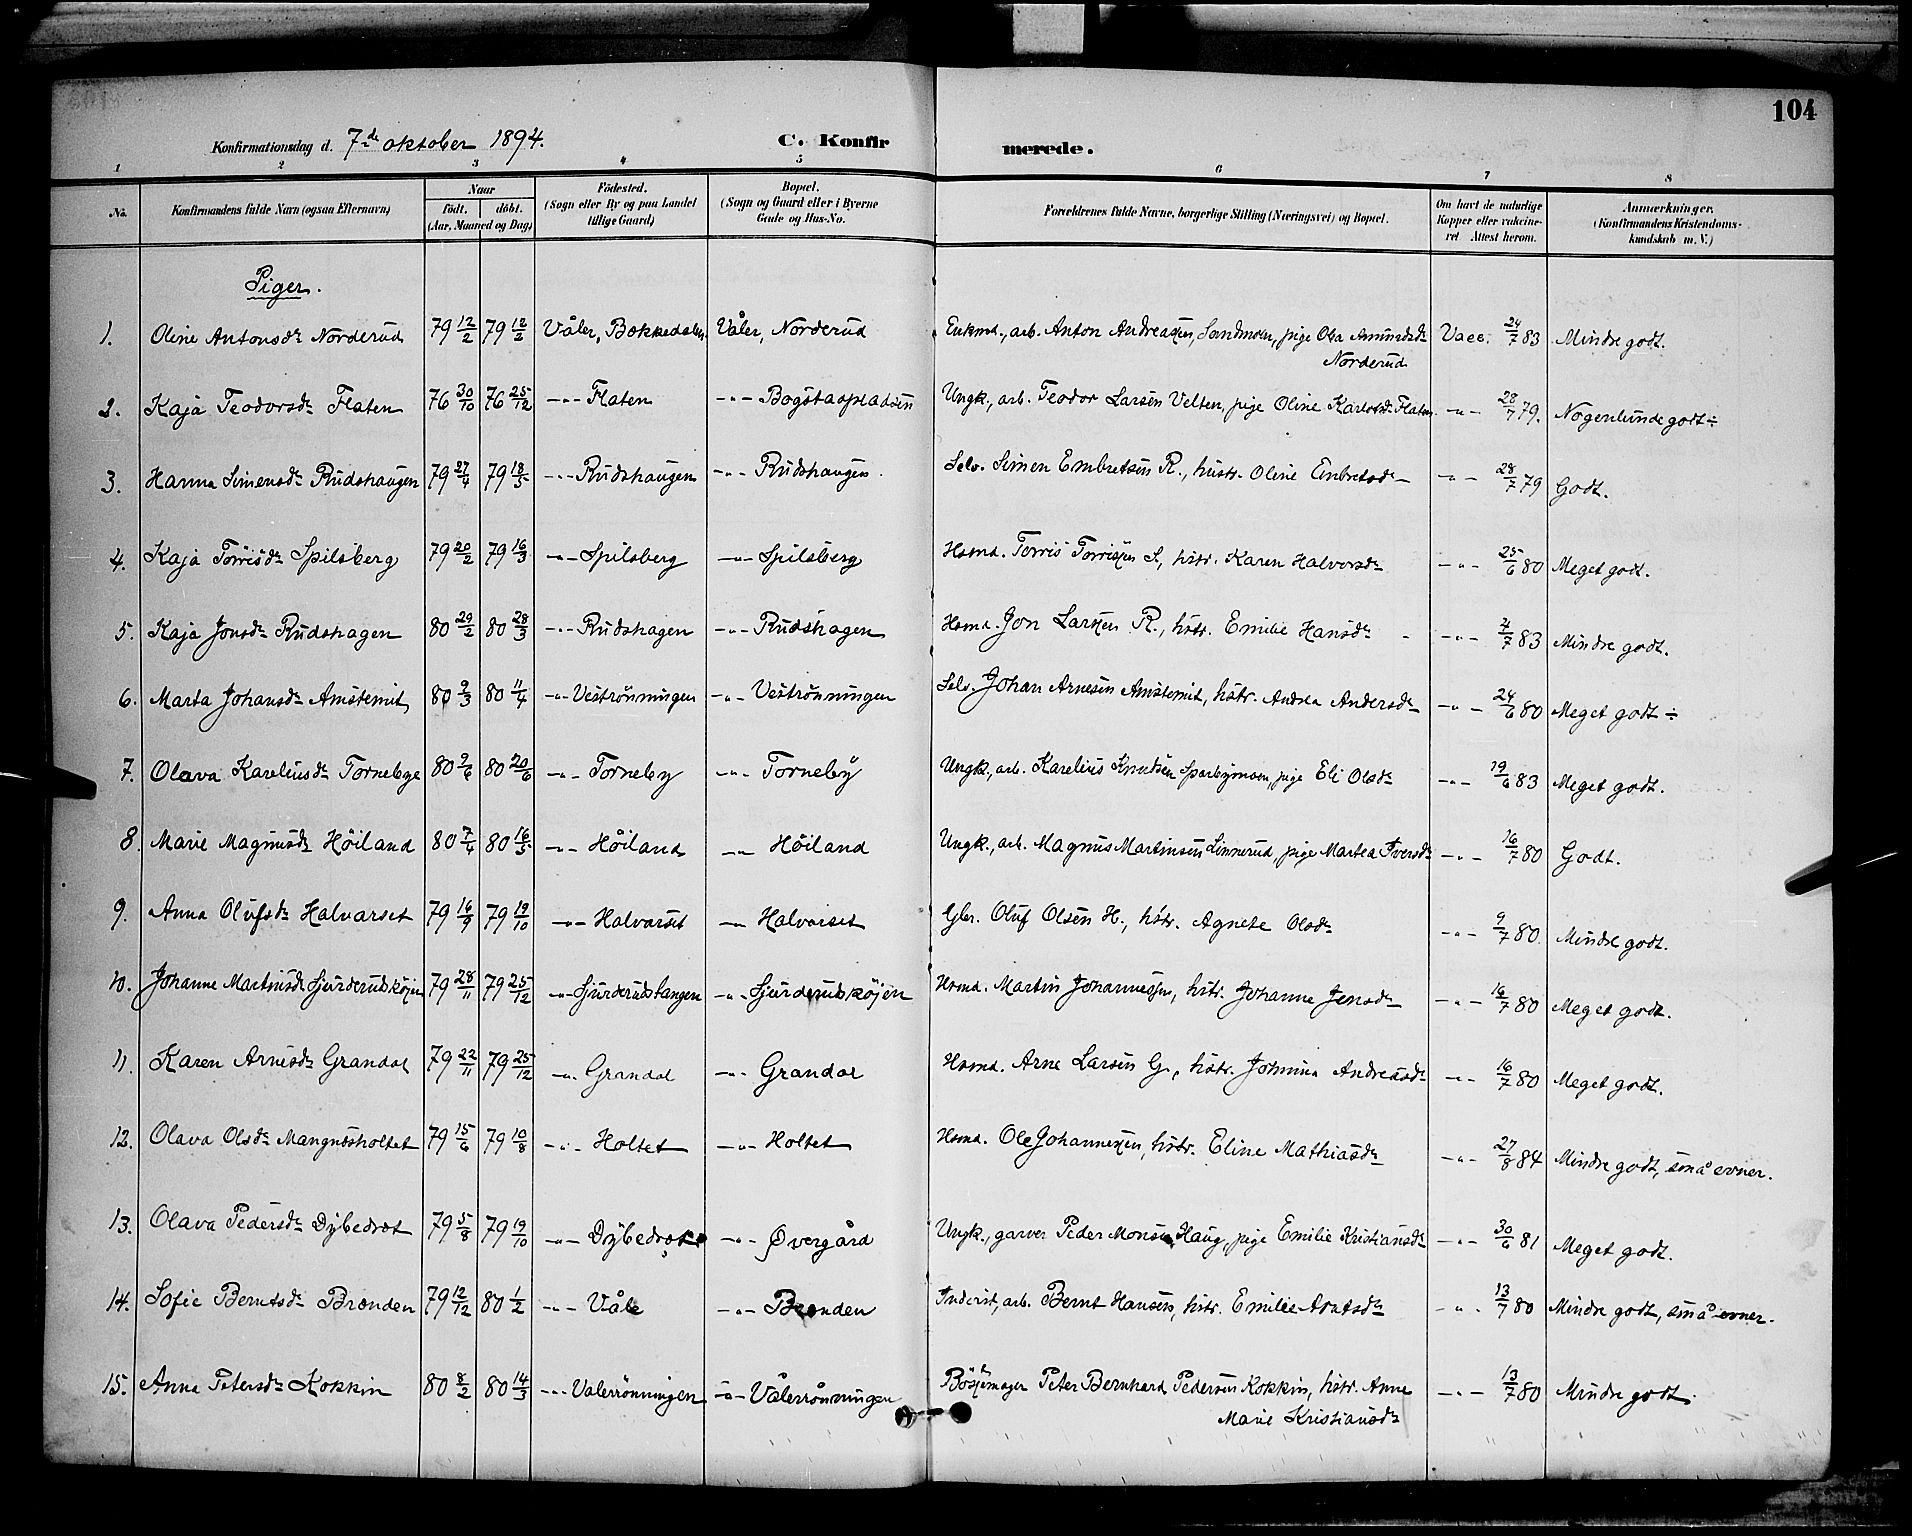 104
Konfirmationsdag d. 7de oktober 1894. C. Konfirmerede.
1 2 3 4 5 6 7 8
No. Konfirmandens fulde Navn (ogsaa Efternavn) Naar født. døbt. (Aar, Maaned og Dag) Fødested. (Sogn eller By og paa Landet tillige Gaard) Bopæl. (Sogn og Gaard eller i Byerne Gade og Hus-No. Forældrenes fulde Navne, borgerlige Stilling (Næringsvei) og Bopæl. Om havt de naturlige Kopper eller vakcineret Attest herom. Anmærkninger. (Konfirmandens Kristendomskundskab m. V.)
Piger.
1. Oline Antonsdr Norderud 79 12/2 79 12/2 Våler, Bekkedalen Våler, Norderud Enkmd., arb. Anton Andreassen, Sandmoen, pige Olea Amundsdr Vacc. 24/7 83 Mindre godt.
Norderud
2. Kaja Teodorsdr Flaten 76 30/10 76 25/12 -"- Flaten -"- Bogstadpladsen Ungk., arb. Teodor Larsen Velten, pige Oline Karlsdr Flaten -"- 28/7 79. Nogenlunde godt ÷
3. Hanna Simensdr Rudshaugen 79 27/4 79 18/5 -"- Rudshaugen -"- Rudshaugen Selv. Simen Embretsen R., hustr. Oline Embretsdr -"- 28/7 79 Godt.
4. Kaja Torrisdr Spilsberg 79 20/2 79 16/3 -"- Spilsberg -"- Spilsberg Hsmd. Torris Torrissen S., hstr. Karen Halvorsdr -"- 25/6 80 Meget godt.
5. Kaja Jonsdr Rudshagen 80 29/2 80 28/3 -"- Rudshagen -"- Rudshagen Hsmd. Jon Larssen R., hstr. Emilie Hansdr -"- 4/7 83 Mindre godt.
6. Marta Johansdr Amstemit 80 9/3 80 11/4 -"- Veströnningen -"- Veströnningen Selv. Johan Arnesen Amstemit, hstr. Andrea Andersdr -"- 24/6 80 Meget godt ÷
7. Olava Kareliusdr Tornebye 80 9/6 80 20/6 -"- Torneby -"- Torneby Ungk., arb. Karelius Knudsen Sparbymoen, pige Eli Olsdr -"- 19/6 83 Meget godt.
8. Marie Magnusdr Höiland 80 7/4 80 16/5 -"- Höiland -"- Höiland Ungk., arb. Magnus Martinsen Linnerud, pige Martea Iversdr -"- 16/7 80 Godt.
9. Anna Olufsdr Halvarset 79 16/9 79 19/10 -"- Halvarset -"- Halvarset Gbr. Oluf Olsen H., hstr. Agnete Olsdr -"- 9/7 80. Mindre godt.
10. Johanne Martinsdr Sjurderudskøjen 79 28/11 79 25/12 -"- Sjurderudstangen -"- Sjurderudskøjen Hsmd. Martin Johannessen, hstr. Johanne Jensdr -"- 16/7 80 Meget godt.
11. Karen Arnesdr Grandal 79 22/11 79 25/12 -"- Grandal -"- Grandal Hsmd. Arne Larsen G., hstr. Johnina Andreasdr -"- 16/7 80 Meget godt.
12. Olava Olsdr Mangnæsholtet 79 15/6 79 10/8 -"- Holtet -"- Holtet Hsmd. Ole Johannessen, hstr. Eline Mathiasdr -"- 27/8 84 Mindre godt, små evner.
13. Olava Pedersdr Dybedræt 79 5/8 79 19/10 -"- Dybedræt -"- Øvergård Ungk., garver Peder Monsen Haug, pige Emilie Kristiansdr -"- 30/6 81 Meget godt.
14. Sofie Berntsdr Brænden 79 12/12 80 1/2 -"- Våle -"- Brænden Inderst, arb. Bernt Hansen, hstr. Emilie -"- 13/7 80 Mindre godt, små evner.
15. Anna Petersdr Kokkin 80 8/2 80 14/3 -"- Valerrönningen -"- Vålerrönningen Bössemager Peter Bernhard Pedersen Kokkin, hstr. Anne -"- 13/7 80 Mindre godt.
Marie Kristiansdr